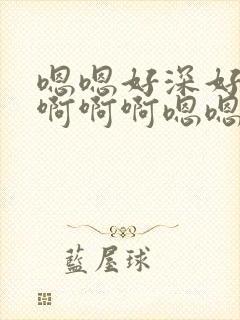 嗯嗯好深好
啊啊啊嗯嗯
藍屋球